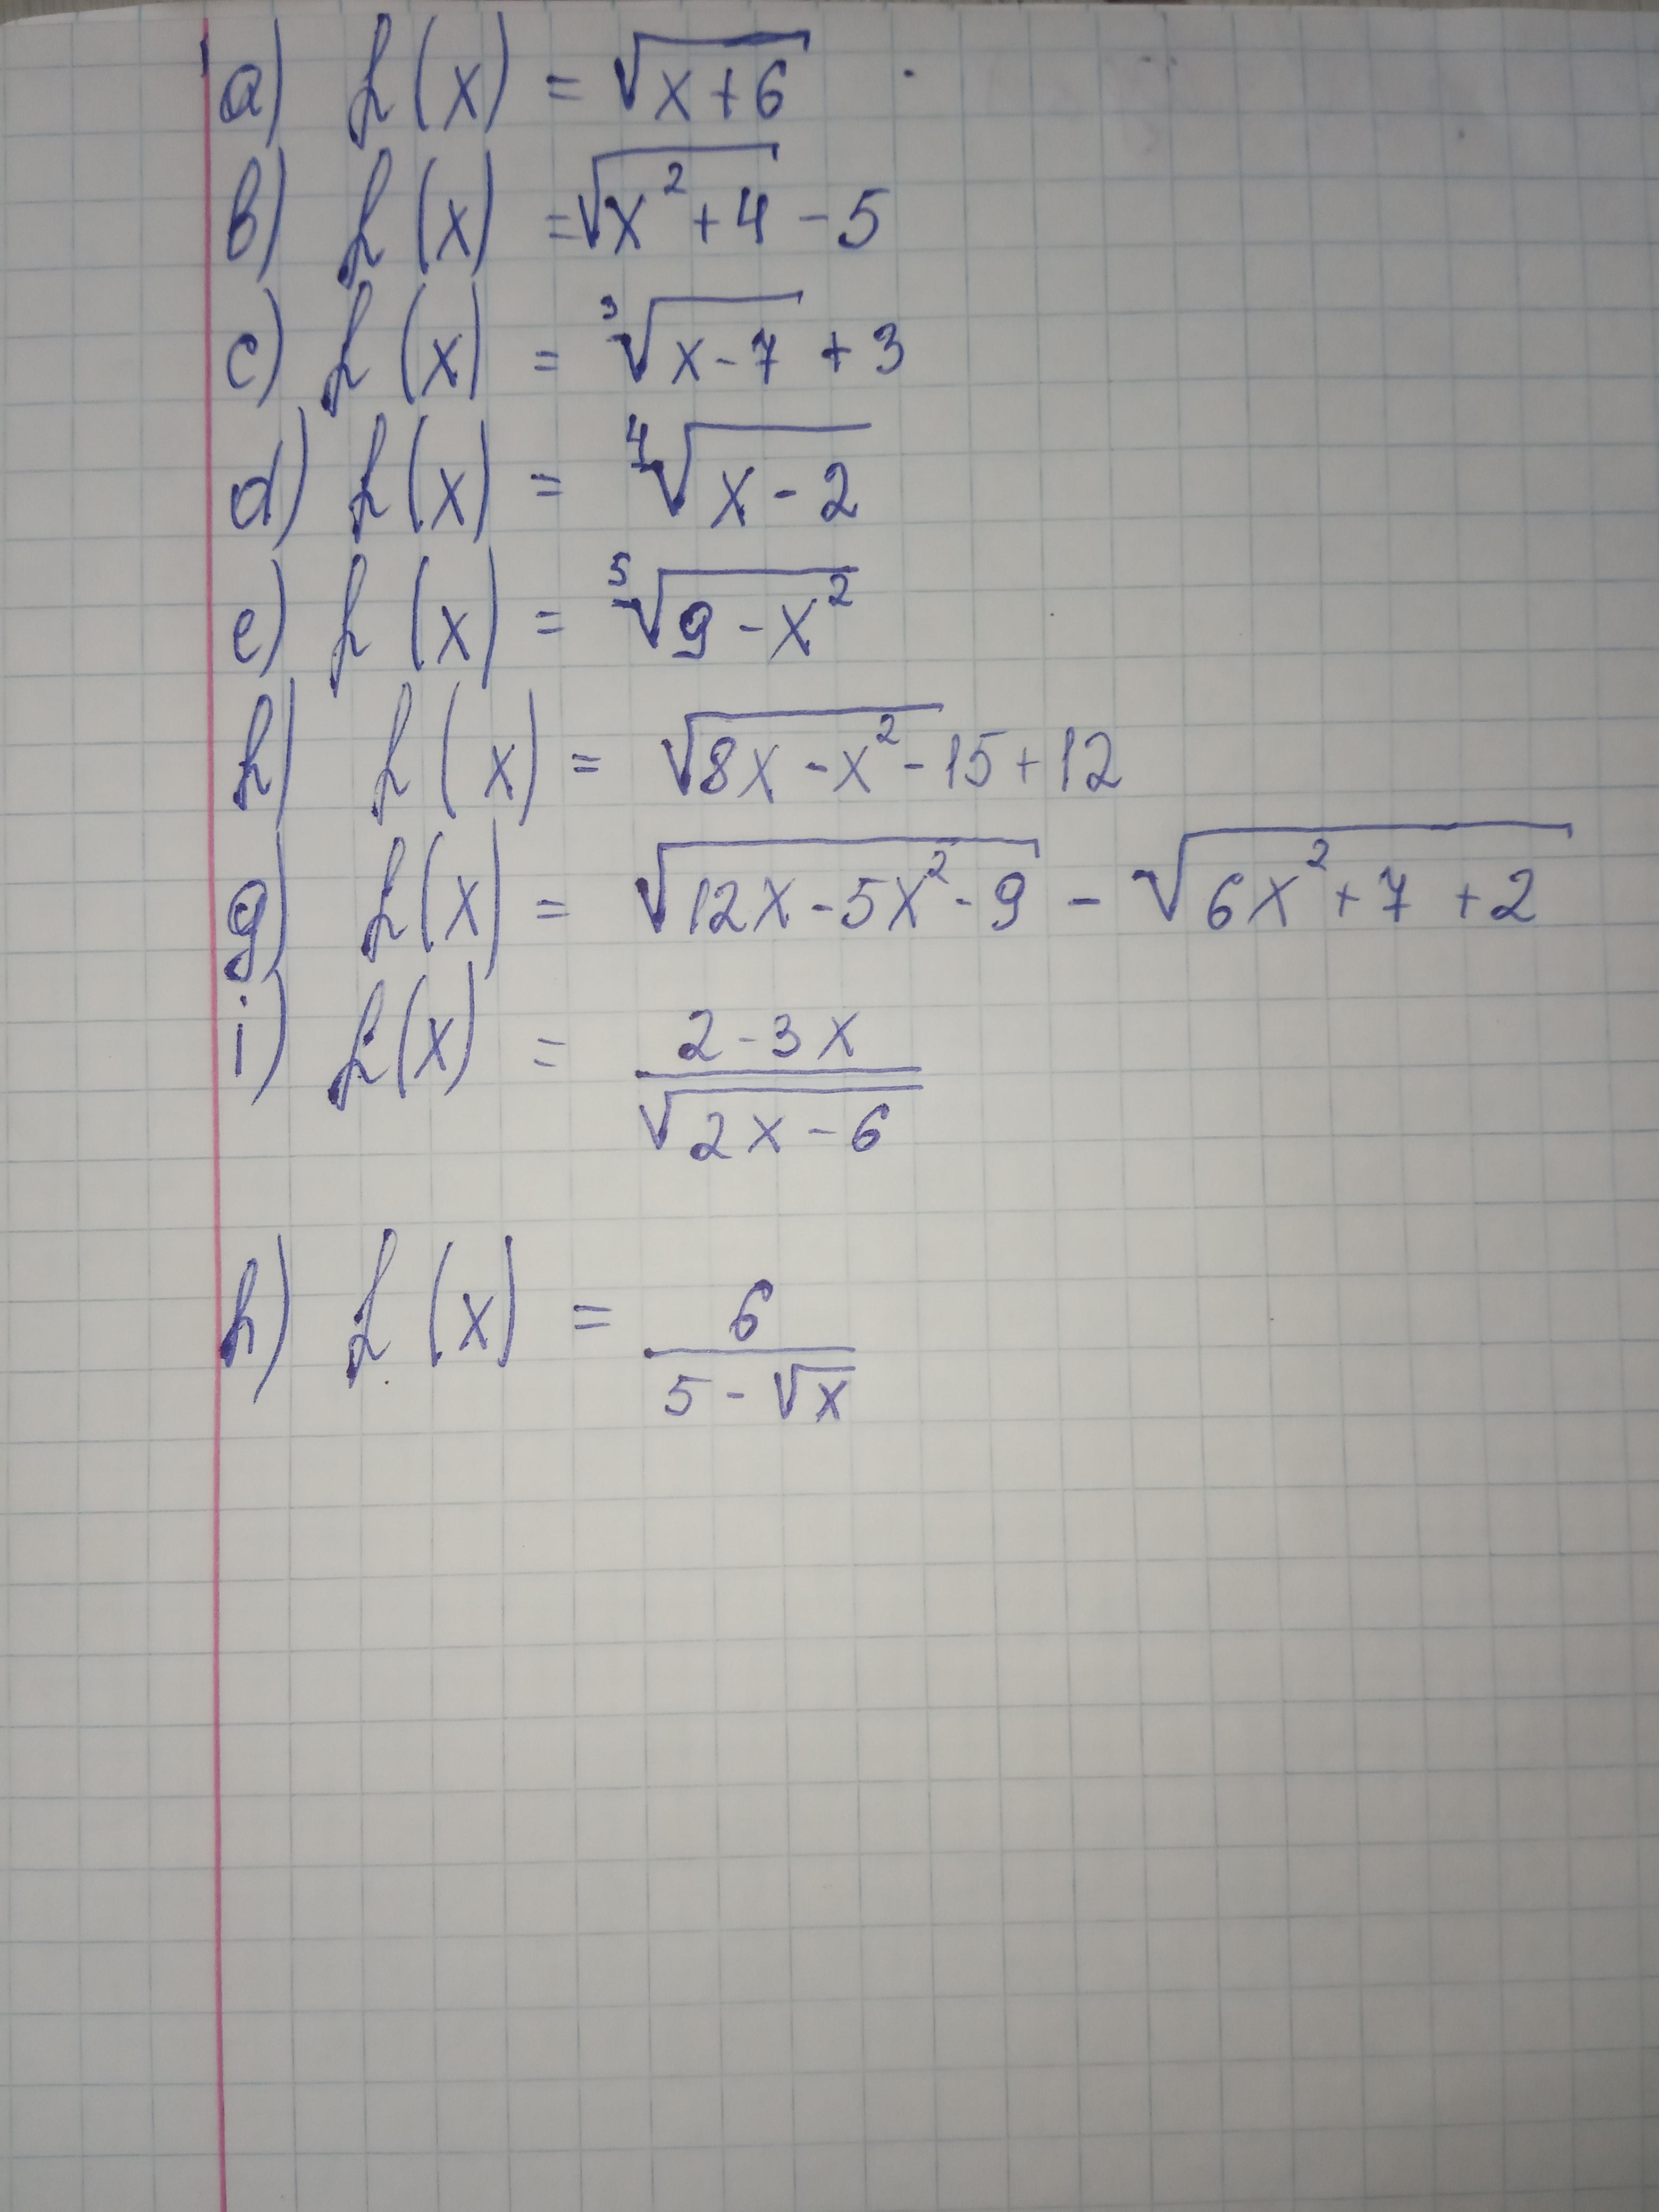 a) f(x) = √(x+6)
b) f(x) = √(x²+4) - 5
c) f(x) = ³√(x-7) + 3
d) f(x) = ⁴√(x-2)
e) f(x) = ⁵√(9-x²)
h) f(x) = √(8x-x²-15)+12
g) f(x) = √(12x-5x²-9) - √(6x²+7+2)
i) f(x) = (2-3x)/√(2x-6)
h) f(x) = 6/(5-√x)